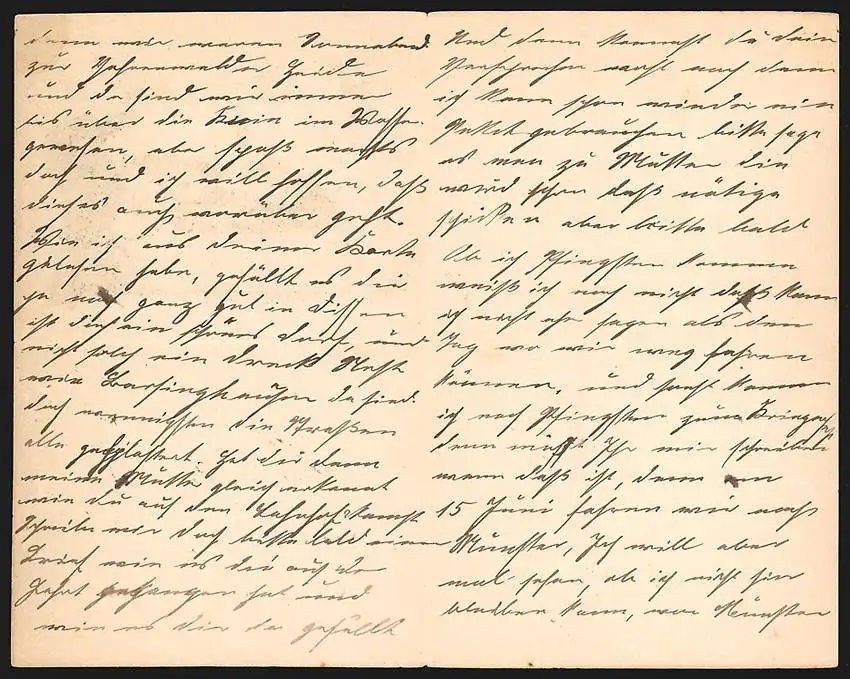 denn wir waren Sonnabend
zur Vahrenwalder Heide
und da sind wir immer
bis über die Knie im Wasser
gewesen, aber spaß machts
doch und ich will hoffen, daß
dieses auch vorüber geht.
Wie ich aus deiner Karte
gelesen habe, gefällt es dir
ja noch ganz gut in Dissen
ist dies ein schönes Dorf, und
nicht solch ein Dreck Nest
wie Barsinghausen da sind
doch wenigsten die Straßen
alle gepflastert. Hat dir denn
meine Mutter gleich erkannt
wie du auf den Bahnhof kamst
Schreibe mir doch bitte bald einen
Brief wie es dir auf der
Fahrt gegangen hat und
wie es dir da gefällt
Und dann kommst du dein
Versprochen nach denn
ich kann schon wieder ein
Packet gebrauchen bitte sage
es man zu Mutter die
wird schon daß nötige
schicken aber bitte bald
Ob ich Pfingsten komme
weiß ich noch nicht daß kann
ich nicht eher sagen als den
Tag wo wir weg fahren
können, und sonst komme
ich nach Pfingsten zum
denn müßt Ihr mir schreiben
wann daß ist, denn am
15 Juni fahren wir nach
Münster, Ich will aber
mal sehen, ob ich nicht hier
bleiben kann, von Münster